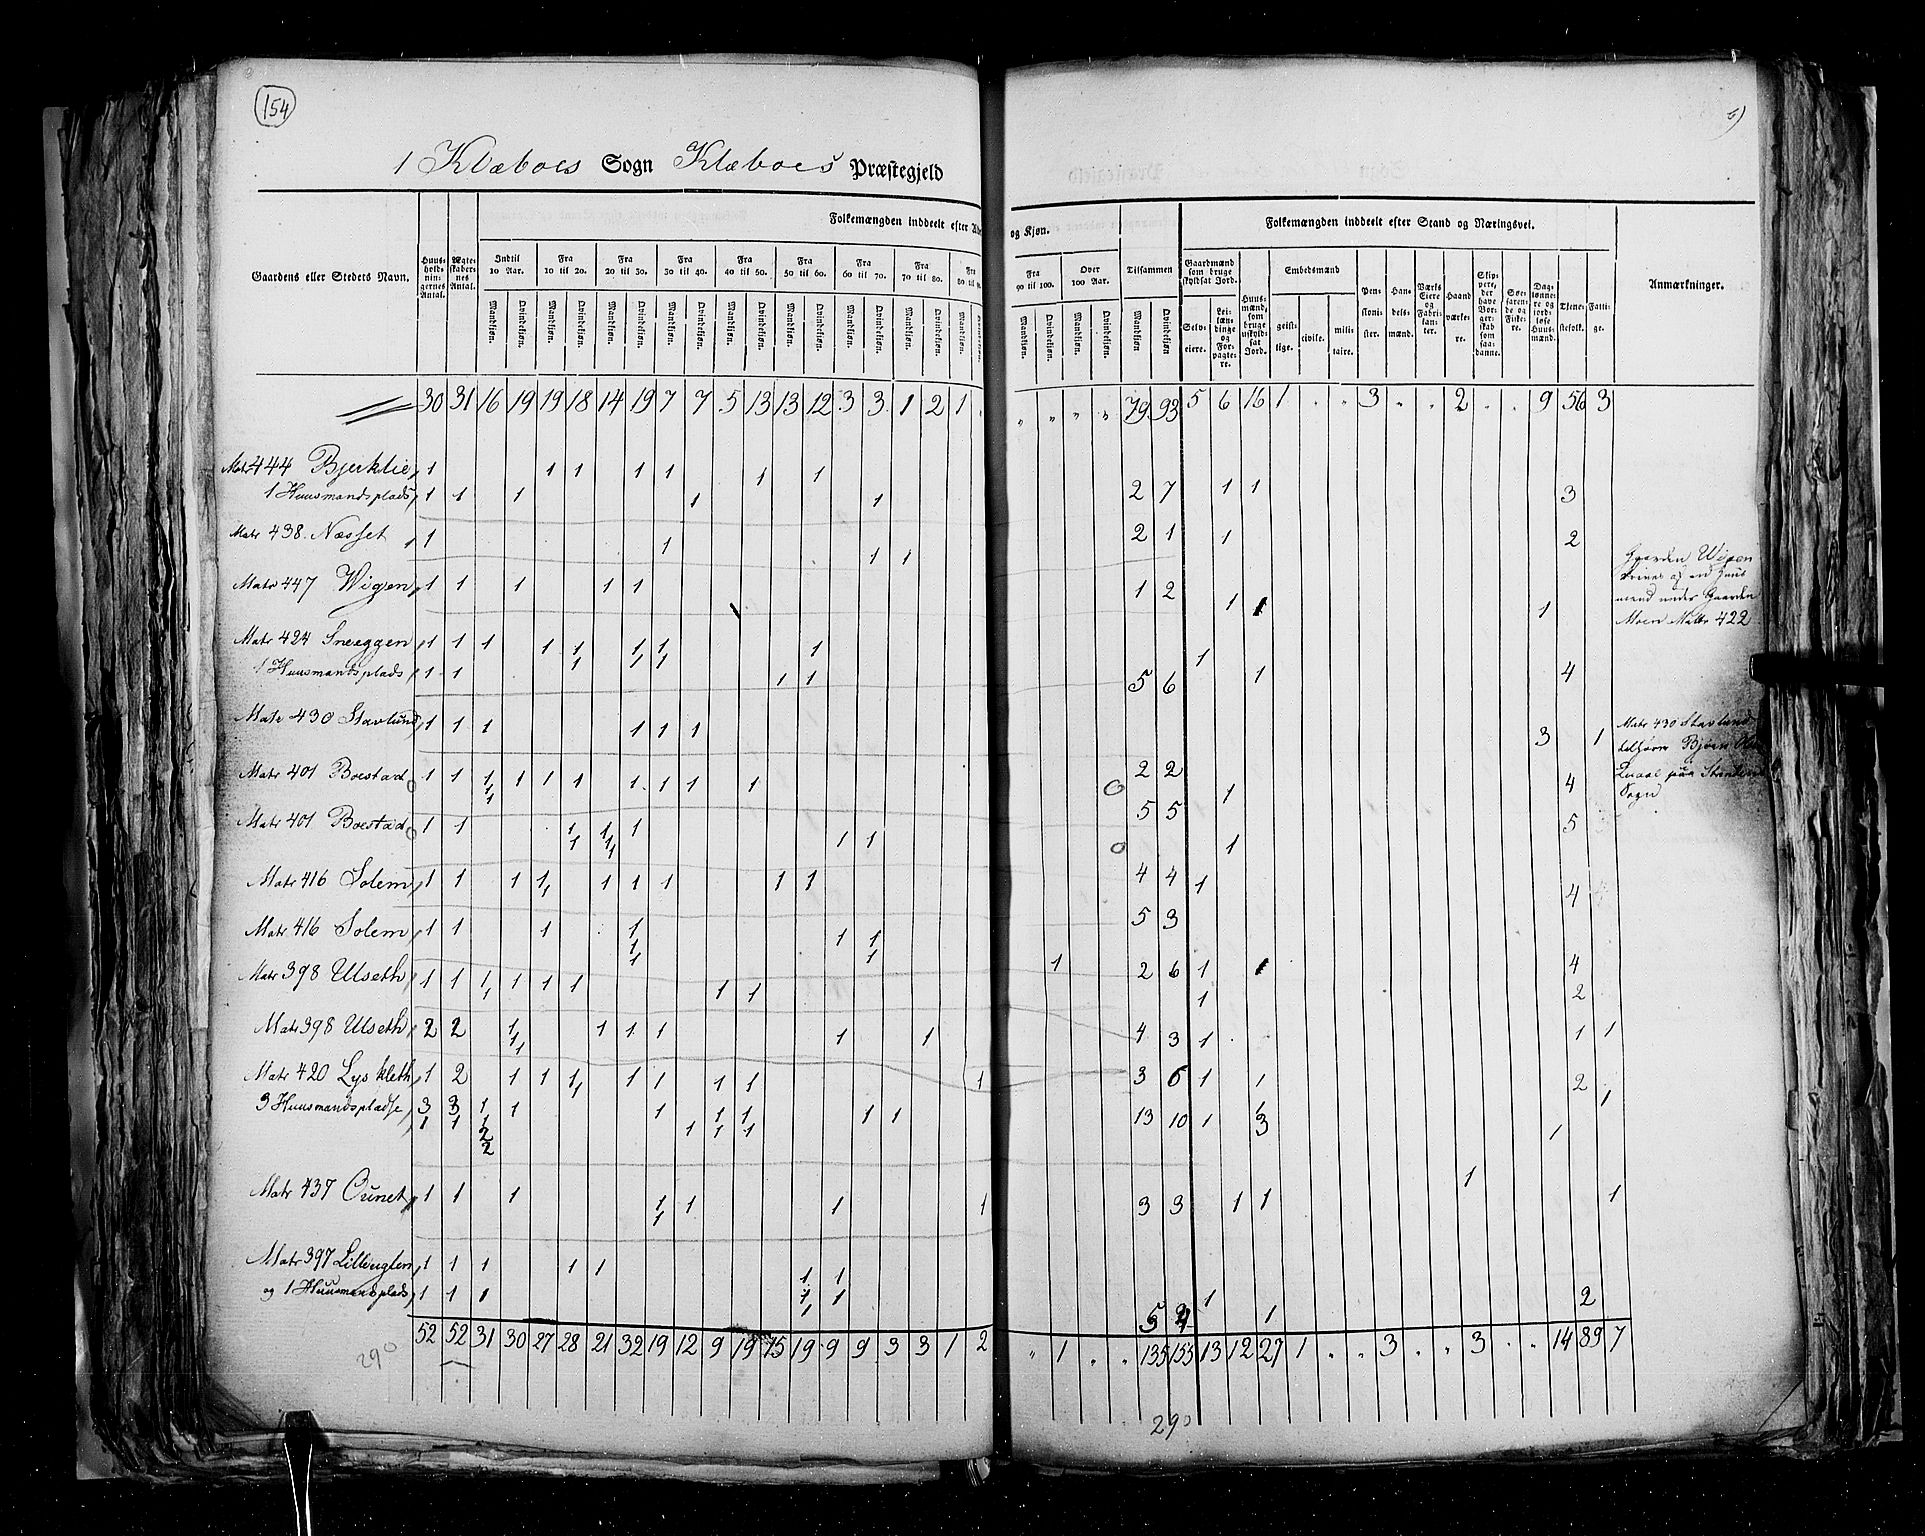 154
6)
1 Klæboes Sogn Klæboes Præstegjeld
Gaardens eller Stedets Navn.
Huus-holdnin-gernes Antal.
Ægte-skaber-nes Antal.
Folkemængden inddeelt efter Al
og Kjøn.
Indtil 10 Aar.
Fra 10 til 20.
Fra 20 til 30.
Fra 30 til 40.
Fra 40 til 50.
Fra 50 til 60.
Fra 60 til 70.
Fra 70 til 80.
Fra 80 til
Fra 90 til 100.
Over 100 Aar.
Tilsammen
Mandkjøn. Qvindekjøn.
Folkemængden inddeelt efter Stand og Næringsvei.
Gaardmænd som bruge skyldsat Jord.
Selv-eiere.
Lei-len-dinge og For-pagte-re.
Huus-mænd, som bruge uskyld-sat Jord.
Embedsmænd
geist-lige. civile. mili-taire.
Pen-sioni-ster.
Han-dels-mænd.
Værks Eiere og Fabri-kan-ter.
Haand værke-re.
Skip-pere, der have Bor-ger-skab som saa-danne.
Søe-farende og Fiske-re.
Dag-lønne-re og jord-løse Huus-mænd.
Tjene-stefolk.
Fatti-ge.
Anmærkninger.
30 31 16 19 19 18 14 19 7 7 5 13 13 12 3 3 1 2 1 " " " " 79 93 5 6 16 1 " " 3 " " 2 " " 9 56 3
Matr 444 Bjerklie, 1 1 1 1 1 1 1
1 Huusmandsplads, 1 1 1 1 1 2 7 1 1 3
Matr 438 Næsset 1 1 1 1 2 1 1 2
Matr 447 Wigen, 1 1 1 1 1 1 2 1 1 1
Gaarden Wigen
mand under Gaarden
Moen Matr 422
Matr 424 Sneeggen 1 1 1 1 1 1 1 1 1 1 1 1
1 Huusmandsplads 1 1 1 1 5 6 1 4
Matr 430 Stavlund, 1 1 1 1 1 1 2 2 3 1
Matr 430 Stavlund
Sogn
Matr 401 Boestad 1 1 1 1 1 1 1 1 1 1 1 5 5 1 4
Matr 401 Boestad 1 1 1 1 1 1 1 1 1 1 4 4 1 5
Matr 416 Solem, 1 1 1 1 1 1 1 1 1 1 5 3 1 4
Matr 416 Solem, 1 1 1 1 1 1 1 1 1 1 2 6 1 4
Matr 398 Ulseth, 1 1 1 1 1 1 1 1 1 4 3 1 2
Matr 398 Ulseth, 2 2 1 1 1 1 1 1 1 1 3 6 1 1 1
Matr 420 Lyskleth, 1 2 1 1 1 1 1 1 1 1 1 13 10 1 2
3 Huusmandspladse, 3 3 1 1 1 1 1 1 1
Matr 437 Ounet, 1 1 1 1 1 1 1 1 3 3 1 1 1 1
Matr 397 Lilleuglen, 1 1 1 1 1 1 1
og 1 Huusmandsplads, 1 1 1 1 1 5 4 1 1 2
52 52 31 30 27 28 21 32 19 12 9 19 15 19 9 9 3 3 1 2 " 1 " " 135 155 13 12 27 1 " " 3 " " 3 " " 14 89 7
290
290